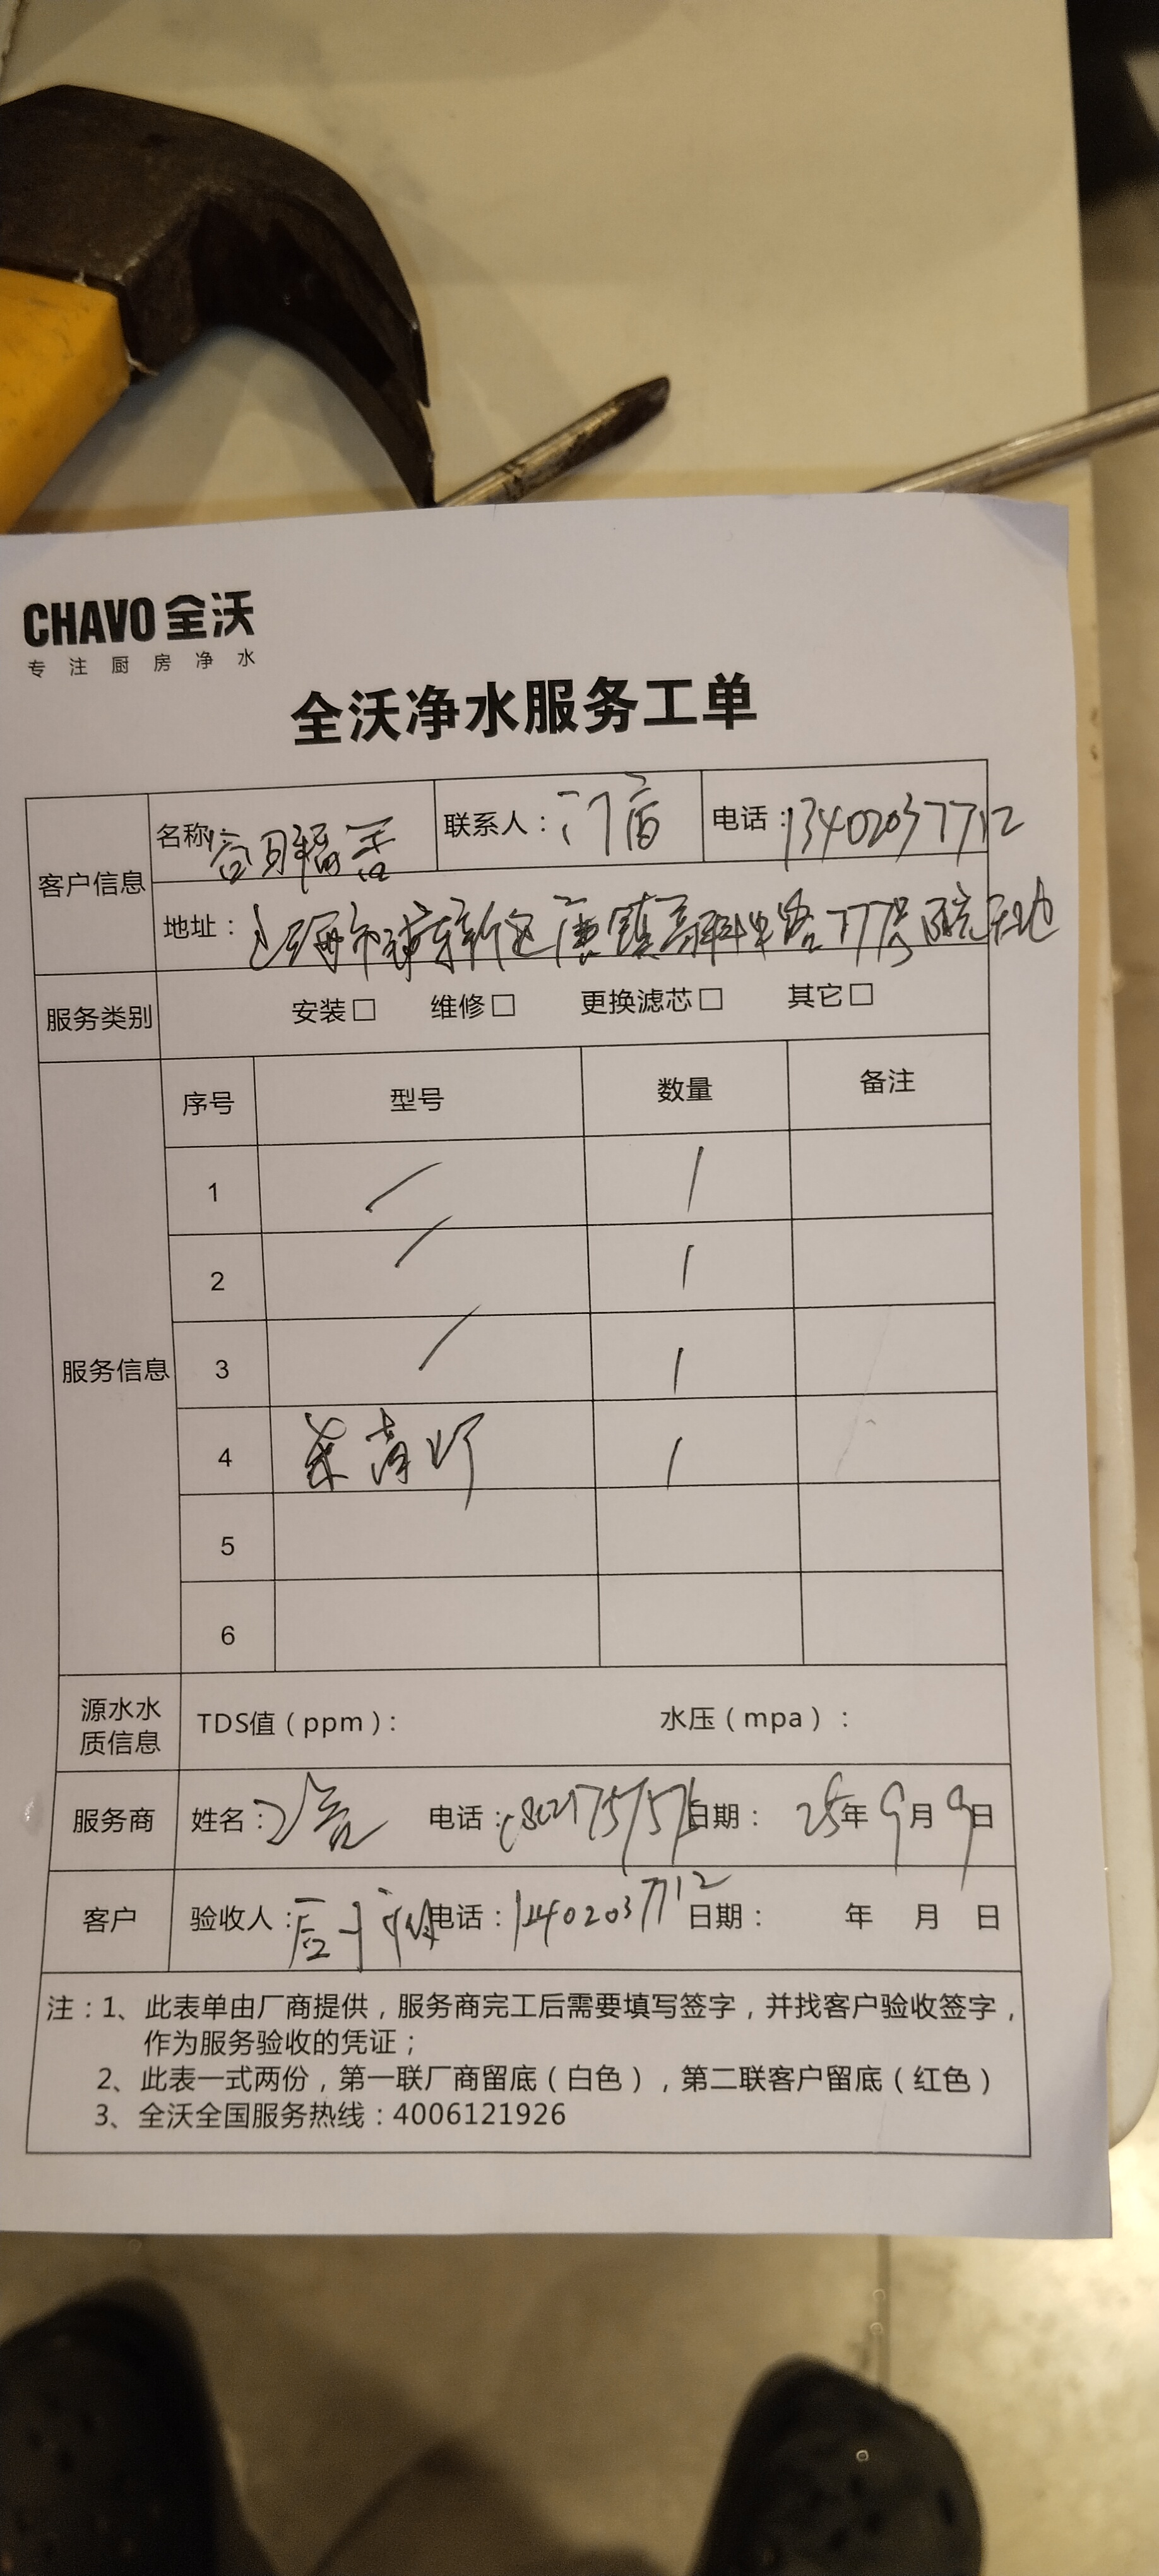 CHAVO 全沃
专注厨房净水
全沃净水服务工单
客户信息 名称 联系人： 门店 电话：13402037712
地址：上海市浦东新区唐镇高科中路777号阳光天地
服务类别 安装□ 维修□ 更换滤芯□ 其它□
服务信息 序号 型号 数量 备注
1 / 1
2 / 1
3 / 1
4 杀菌灯 1
5
6
源水水质信息 TDS值（ppm）： 水压（mpa）：
服务商 姓名： 电话： 日期： 25年9月9日
客户 验收人： 电话： 日期： 年 月 日
注：1、此表单由厂商提供，服务商完工后需要填写签字，并找客户验收签字，
作为服务验收的凭证；
2、此表一式两份，第一联厂商留底（白色），第二联客户留底（红色）
3、全沃全国服务热线：4006121926